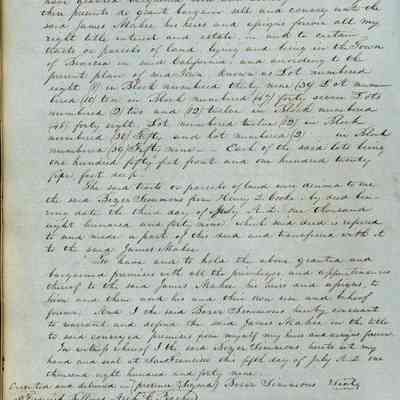 have granted bargained
these presents do grant bargain sell and convey unto the
said James Mahee, his heirs and assigns forever all my
right title interest and estate, in and to certain
tracts or parcels of land, lying and being in the Town
of Benicia in said California, and according to the
present plan of said Town, known as Lot numbered
eight (8) in Block numbered thirty nine (39) Lot num-
bered (10) ten in Block numbered (47) forty seven Lots
numbered (2) two and (12) twelve in Block numbered
(48) forty eight, Lot numbered twelve (12) in Block
numbered Fifty, and Lot numbered (2) in Block
numbered (59) Fifty nine - Each of the said lots being
one hundred fifty feet front and one hundred twenty
five feet deep -
The said tracts or parcels of land were deeded to me
the said Bezer Simmons from Henry D. Cooke by deed bea-
ring date the third day of July A.D. one thousand
eight hundred and forty nine, which said deed is refered
to and made a part of this deed and transfered with it
to the said James Mahee.
To have and to hold the above granted and
bargained premises with all the privileges and appurtenances
thereof to the said James Mahee, his heirs and assigns, to
him and them and his and their own use and behoof
forever. And I the said Bezer Simmons hereby covenant
to warrant and defend the said James Mahee in the title
to said conveyed premises from myself my heirs and assigns forever.
In witness whereof I the said Bezer Simmons hereto set my
hand and seal at San Francisco this fifth day of July A.D. one
thousand eight hundred and forty nine.
Executed and delivered in presence Bezer Simmons